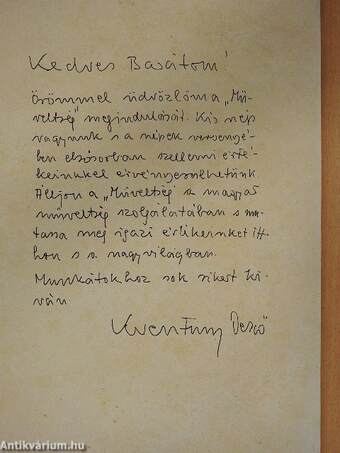 Kedves Barátom!
Örömmel üdvözlöm a „Mű-
veltség" megindulását. Kis nép
vagyunk s a népek versenyé-
ben elsősorban szellemi érté-
keinkkel érvényesülhetünk
Álljon a „Műveltség" a magyar
műveltség szolgálatában s mu-
tassa meg igazi értékeinket itt-
hon s a nagyvilágban.
Munkátokhoz sok sikert kí-
ván
Keresztury Dezső
Antikvárium.hu